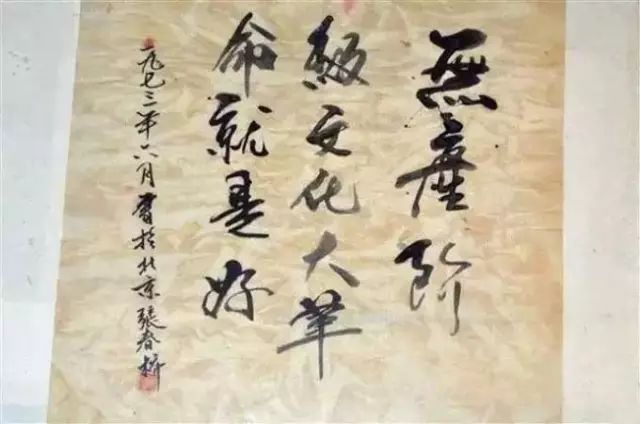 無產阶
級文化大革
命就是好
一九七三年六月書於北京張春桥